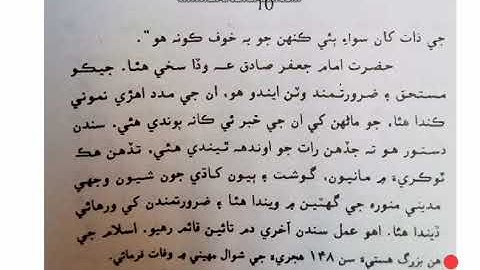 10
جي ذات کان سواءِ ٻئي ڪنهن جو به خوف ڪونه هو".
حضرت امام جعفر صادق عہ وڏا سخي هئا. جيڪو
مستحق ۽ ضرورتمند وٽن ايندو هو، ان جي مدد اهڙي نموني
ڪندا هئا، جو ماڻهن کي ان جي خبر ئي ڪانه پوندي هئي. سندن
دستور هو ته جڏهن رات جو اونداهه ٿيندي هئي. تڏهن هڪ
ٽوڪريءَ ۾ مانيون، گوشت ۽ ٻيون کاڌي جون شيون وجهي
مديني منوره جي گهٽين ۾ ويندا هئا ۽ ضرورتمندن کي ورهائي
ڏيندا هئا. اهو عمل سندن آخري دم تائين قائم رهيو. اسلام جي
هن بزرگ هستيءَ سن ١۴٨ هجريءَ جي شوال مهيني ۾ وفات فرمائي.